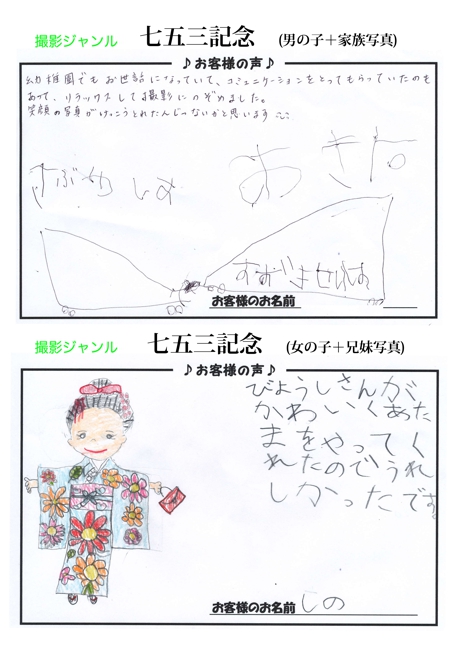 撮影ジャンル 七五三記念 (男の子＋家族写真)
♪お客様の声♪
幼稚園でもお世話になっていて、コミュニケーションをとってもらっていたのも
あって、リラックスして撮影にのぞめました。
笑顔の写真がけっこうとれたんじゃないかと思います
お客様のお名前
撮影ジャンル 七五三記念 (女の子＋兄妹写真)
♪お客様の声♪
びようしさんが
かわいくあた
まをやってく
れたのでうれ
しかったです。
お客様のお名前 しの